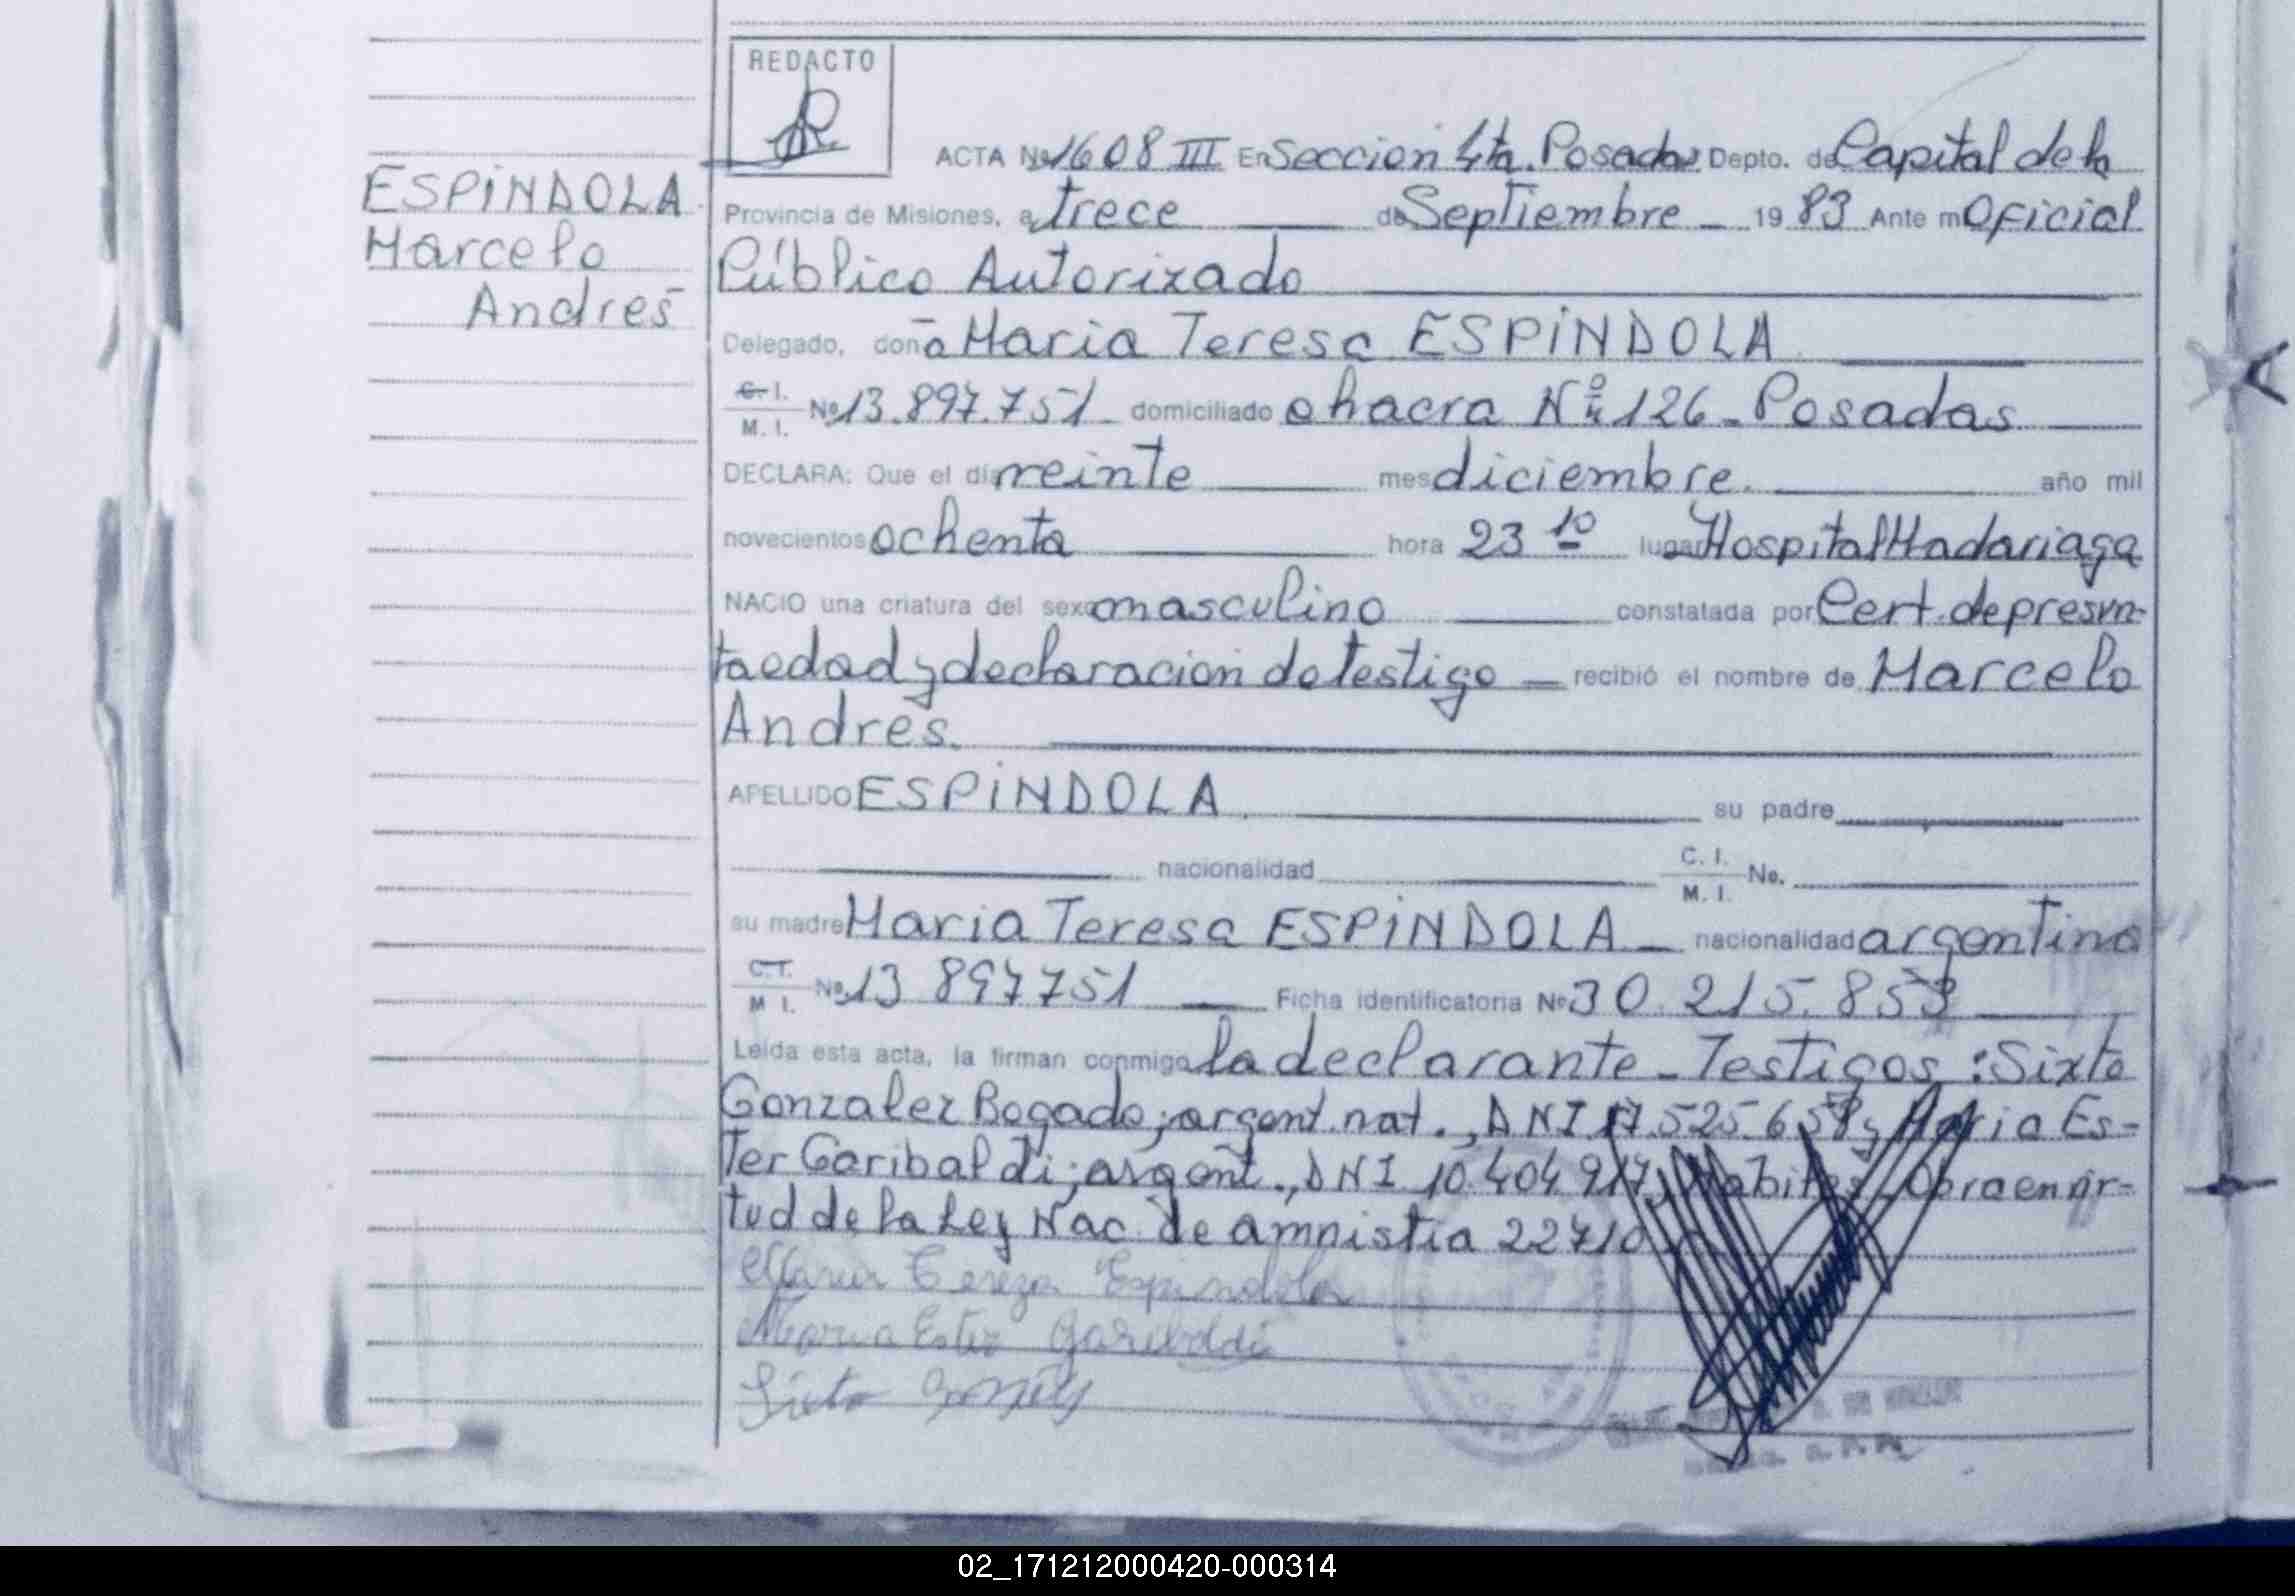 REDACTO
ACTA No 1608 III En Sección 4ta. Posadas Depto. de Capital de la
ESPíNDOLA
Provincia de Misiones, a trece de Septiembre 19 83 Ante mí Oficial
Marcelo
Público Autorizado
Andrés
Delegado, doña María Teresa ESPíNDOLA
C. I. M. I. No 13.897.751 domiciliado chacra Nº 126 - Posadas
DECLARA: Que el día veinte mes diciembre. año mil
novecientos ochenta hora 23 10 lugar Hospital Madariaga
NACIO una criatura del sexo masculino constatada por Cert. de presun-
ta edad y declaración de testigo recibió el nombre de Marcelo
Andrés.
APELLIDO ESPíNDOLA su padre
nacionalidad C. I. M. I. No.
su madre María Teresa ESPíNDOLA nacionalidad argentina
C. I. M. I. No. 13 897 751 Ficha identificatoria No 30.215.853
Leída esta acta, la firman conmigo la declarante - Testigos: Sixto
Gonzalez Bogado; argent. nat., DNI María Es-
ter Garibaldi; argent., DNI 10.404 917, Obra en vir-
tud de la Ley Nac. de amnistía 22710
Maria Tereza Espindola
Maria Ester Garibaldi
Sixto
02_171212000420-000314